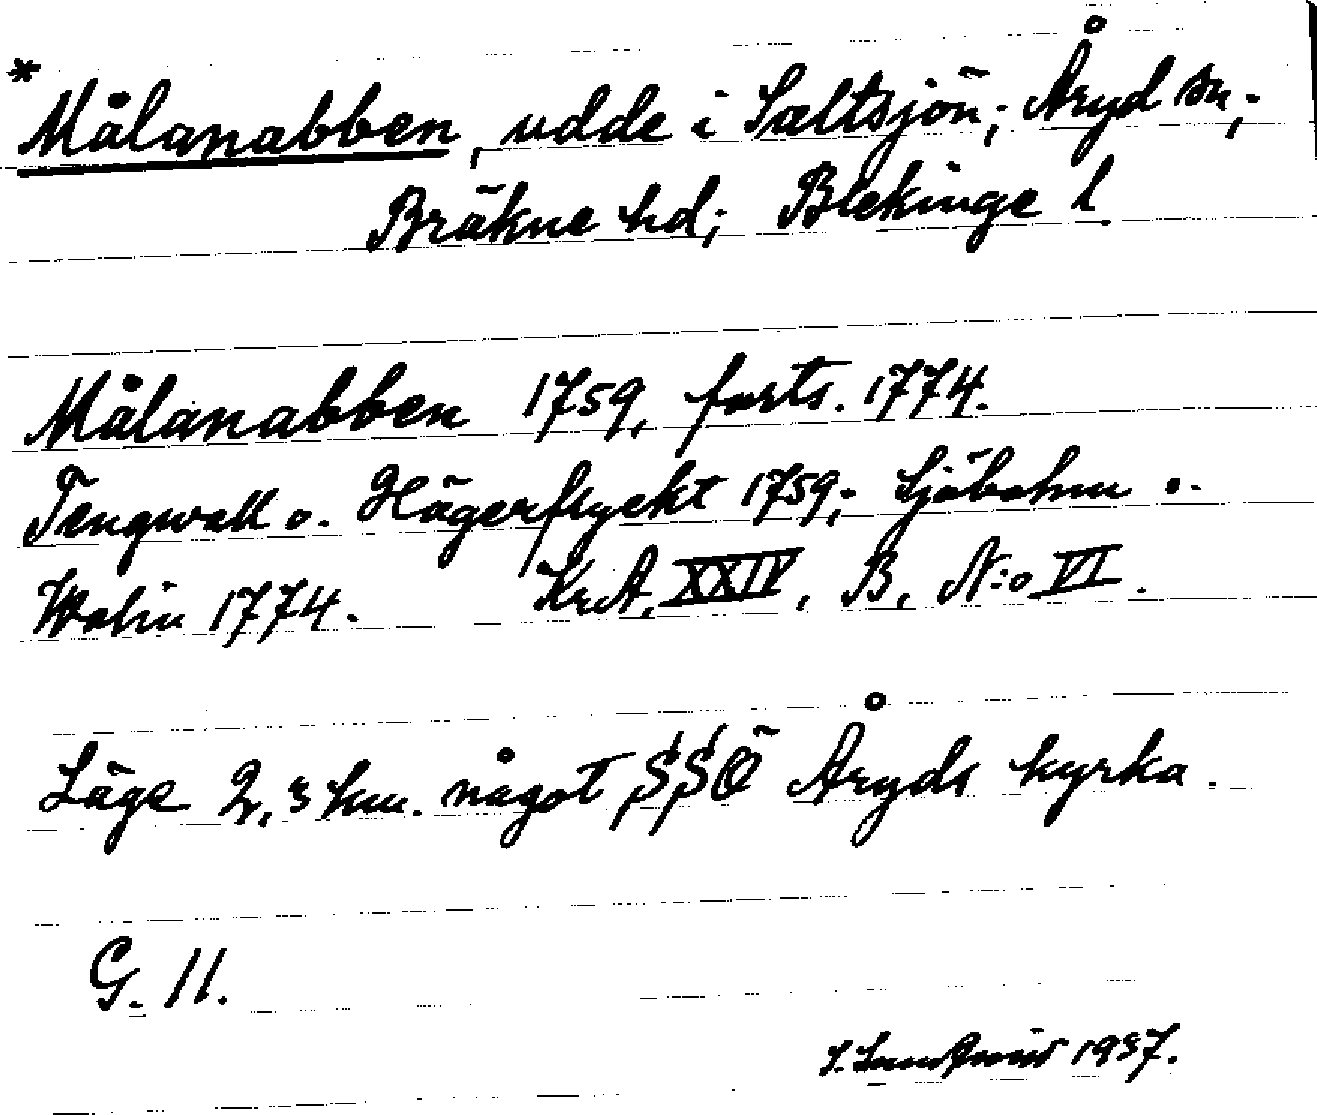 * Målanabben, udde i Saltsjön; Åryd sn;
Bräkne hd; Blekinge l.
Målanabben 1759, forts. 1774.
Tengwall o. Hägerflyckt 1759; Sjöbohm o.
Wahn 1774. KrA, XXIV, B, N:o VI.
Läge 2,3 km. något SSÖ Åryds kyrka.
G. 11.
1937.